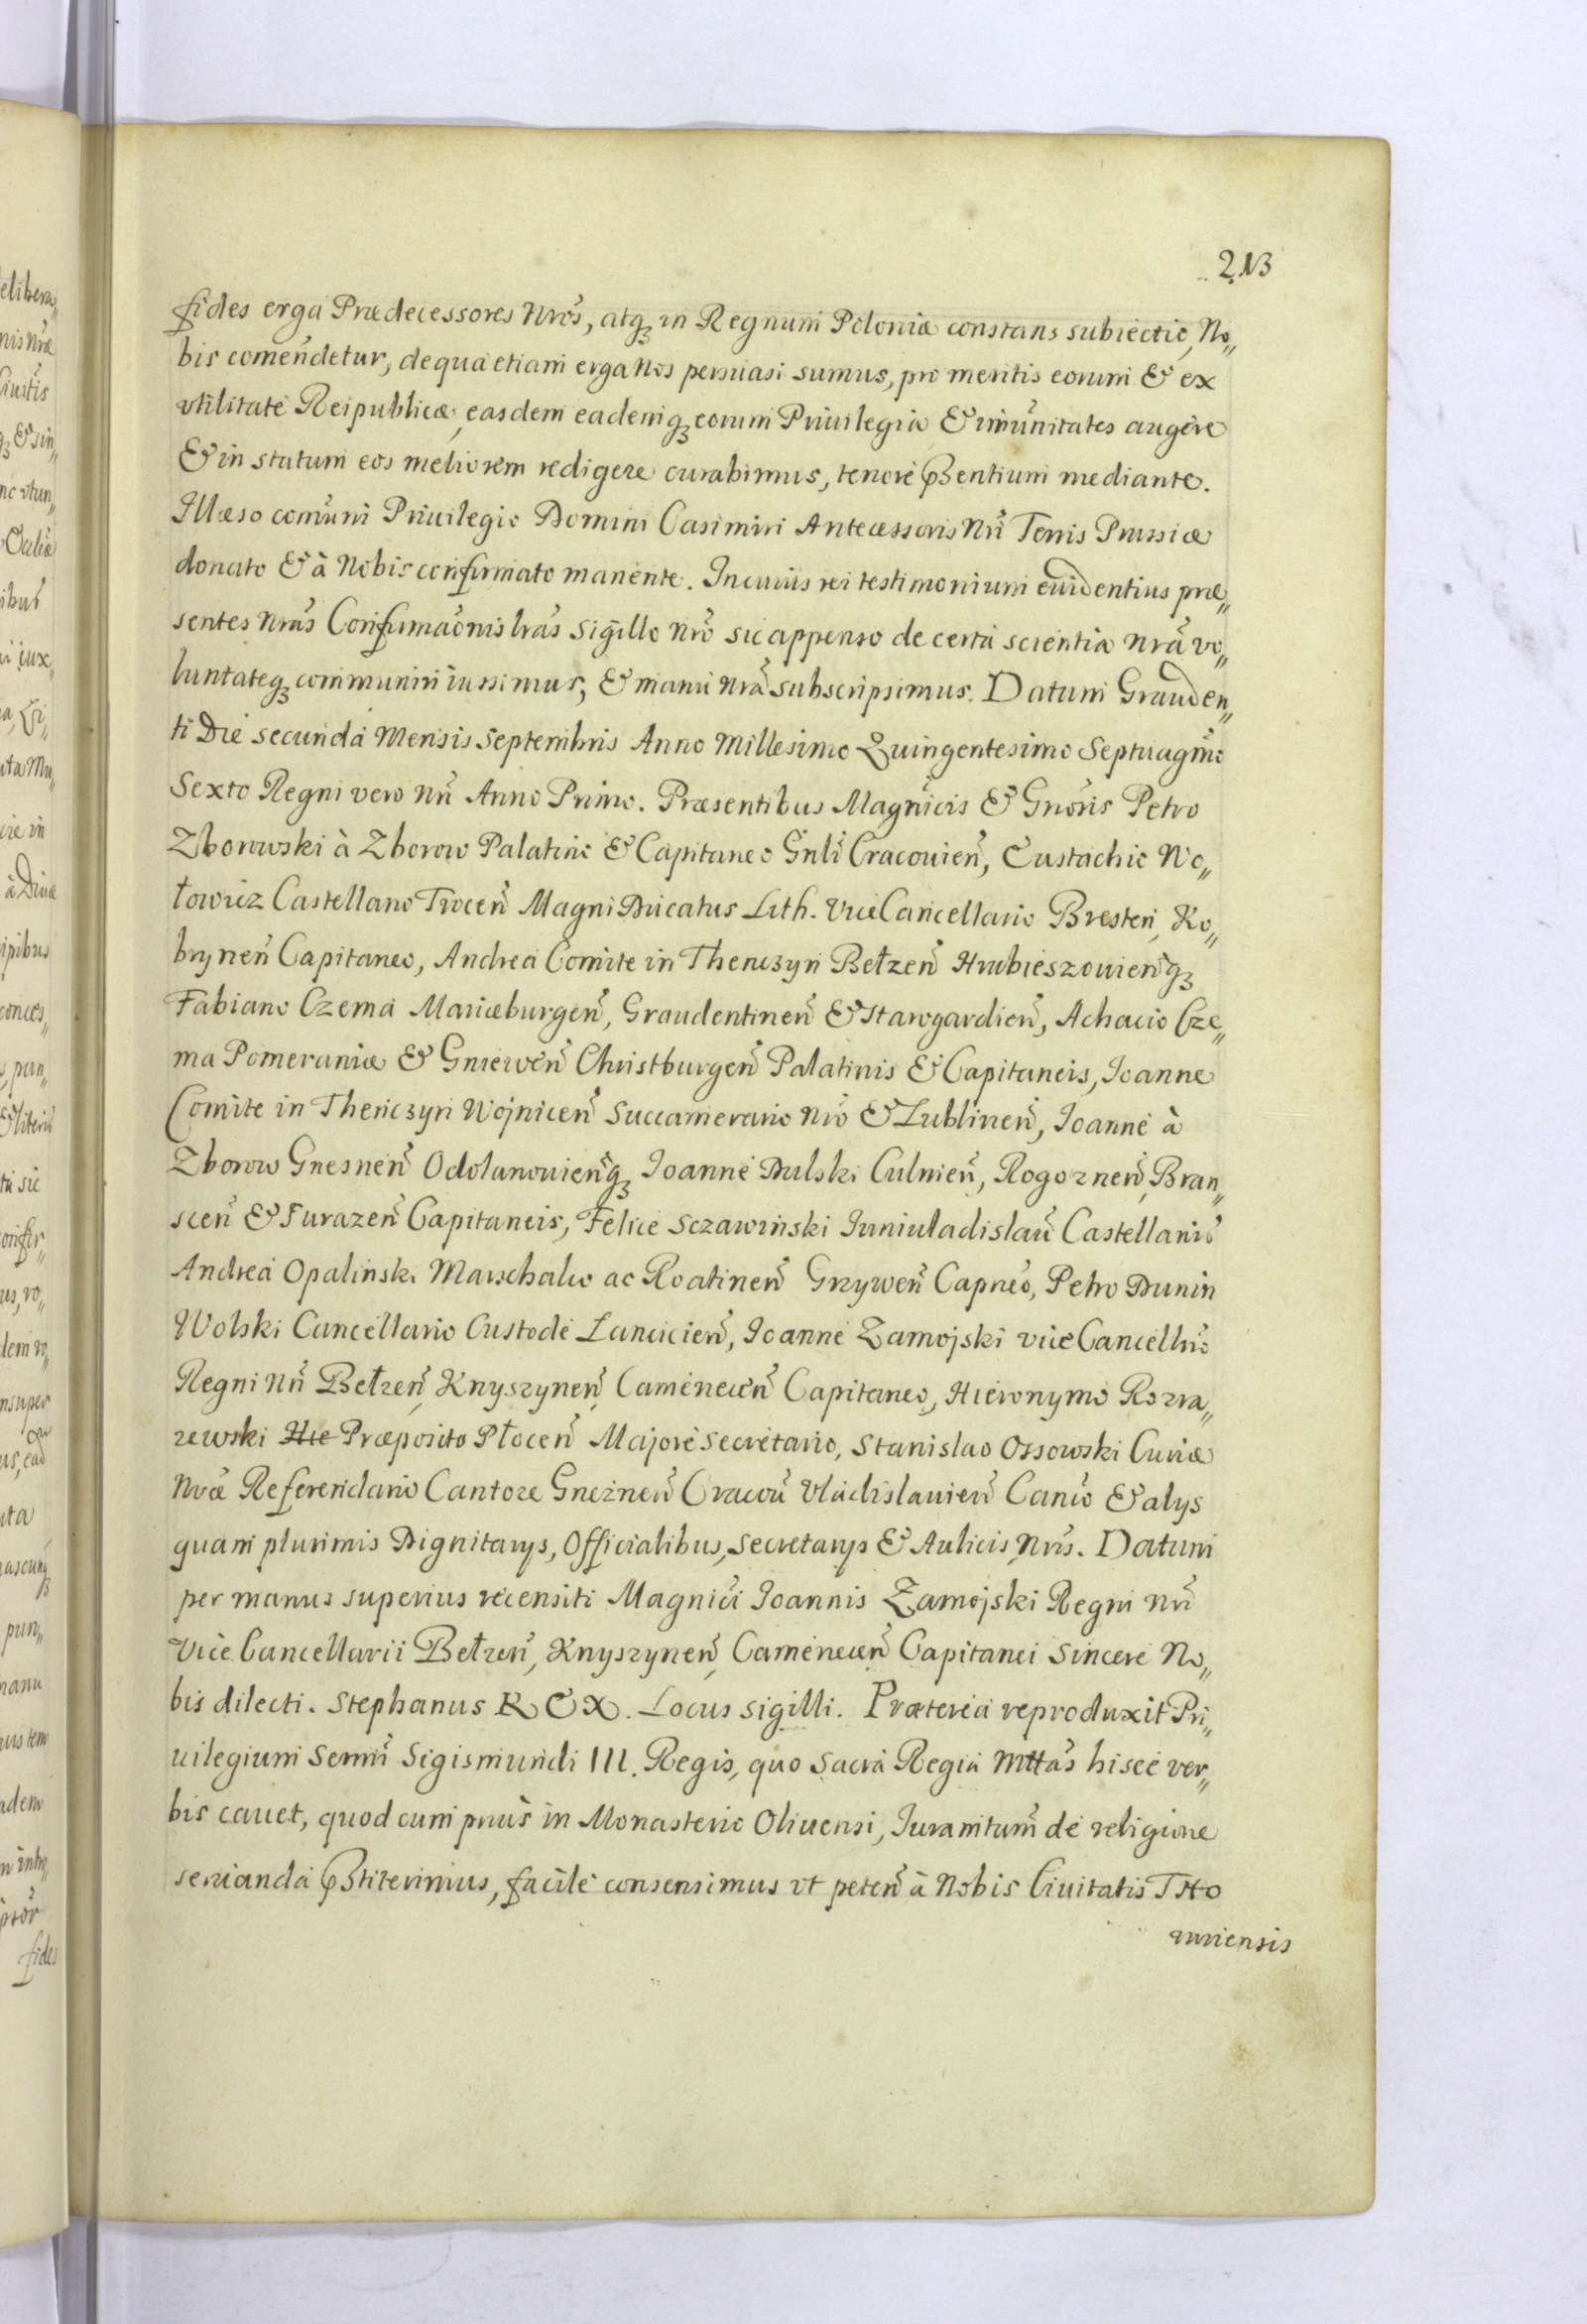 213
fides erga Prædecessores Nrõs, atqꝫ in Regnum Poloniæ constans subiectio, No„
bis comendetur, de qua etiam erga Nos persuasi sumus, pro meritis eorum & ex
vtilitate Reipublicæ, easdem eademqꝫ eorum Priuilegia & imũnitates augere
& in statum eos meliorem redigere curabimus, tenore p̃sentium mediante.
Illæso comũni Priuilegio Domini Casimiri Antecessoris Nrĩ Terris Prussiæ
donato & à Nobis confirmato manente. In cuius rei testimonium euidentius præ„
sentes nrãs Confirmaõnis lrãs sigillo nrõ sic appenso de certa scientia nrã vo„
luntateqꝫ communiri iussimus, & manu nrã subscripsimus. Datum Grauden„
ti Die secunda Mensis Septembris Anno Millesimo Quingentesimo Septuagm̃o
Sexto Regni vero nrĩ Anno Primo. Præsentibus Magn̄icis & Gnõris Petro
Zborowski à Zborow Palatino & Capitaneo Gñli Cracouień, Eustachio Wo„
łowicz Castellano Trocen̄ Magni Ducatus Lith. Vice Cancellario Bresten, Ko„
brynen̄ Capitaneo, Andrea Comite in Thenczyn Bełzen̄ Hrubieszouien̄qꝫ
Fabiano Czema Mariæburgen̄, Graudentinen̄ & Starogardien̄, Achacio Cze„
ma Pomeraniæ & Gniewen̄ Christburgen̄ Palatinis & Capitaneis, Ioanne
Comite in Thenczyn Wojnicen̄ Succamerario nrõ & Lublinen̄, Ioanne à
Zborow Gnesnen̄ Odolanouien̄qꝫ Ioanne Dulski Culmen̄, Rogoznen̄, Bran„
scen̄ & Surazen̄ Capitaneis, Felice Sczawinski Juniuladislau̅ Castellanis
Andrea Opalinski Marschalco ac Roatinen̄ Srzywen̄ Capnẽo, Petro Dunin
Wolski Cancellario Custode Lancicien̄, Ioanne Zamojski vice Cancellrĩo
Regni nrĩ Bełzen̄, Knyszynen̄, Camenecen̄ Capitaneo, Hieronymo Rozra„
zewski Hie Præposito Płocen̄ Majore Secretario, Stanislao Ossowski Curiæ
Nrǣ Referendario Cantore Gneznen̄ Cracou̅ Vladislauien̄ Canco & alys
quam plurimis Dignitarys, Officialibus, Secretarys & Aulicis Nrĩs. Datum
per manus superius recensiti Magnĩci Ioannis Zamojski Regni nrĩ
Vice Cancellarii Bełzen̄, Knyszynen̄, Camenecen̄ Capitanei Sincere No„
bis dilecti. Stephanus REX. Locus sigilli. Præterea reproduxit Pri„
uilegium Sermĩ Sigismundi III. Regis, quo Sacra Regia Mttãs hisce ver„
bis cauet, quod cum prius in Monasterio Oliuensi, Juramtum̄ de religione
seruanda p̃stiterimus, facile consensimus vt peten̄ à Nobis Ciuitatis Tho
runiensis